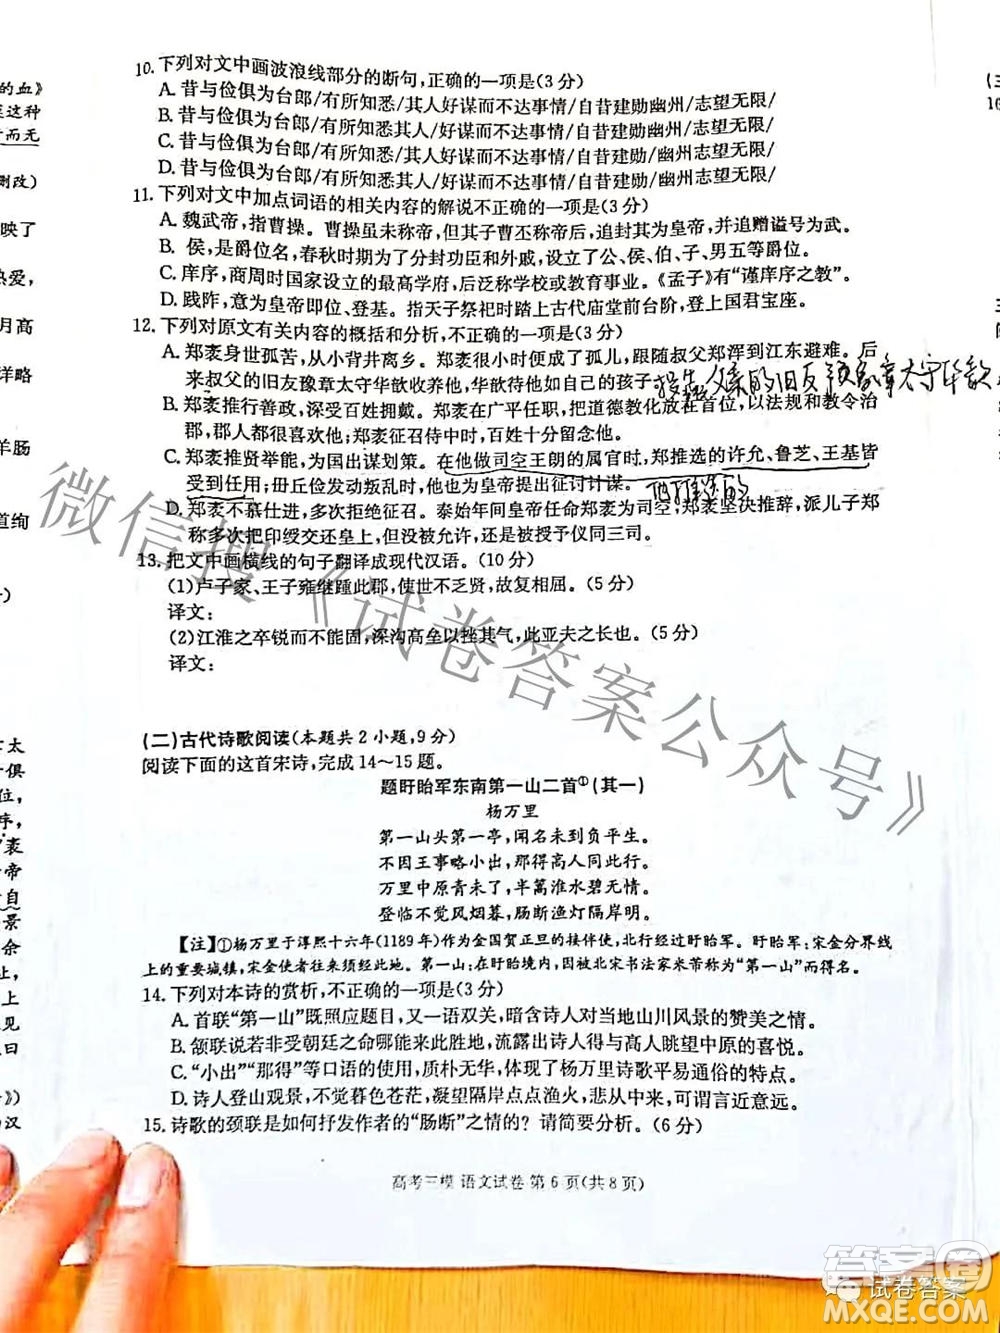 10. 下列对文中画波浪线部分的断句,正确的一项是(3 分)
A. 昔与俭俱为台郎/有所知悉/其人好谋而不达事情/自昔建勋幽州/志望无限/
B. 昔与俭俱为台郎/有所知悉其人/好谋而不达事情/自昔建勋幽州/志望无限/
C. 昔与俭俱为台郎/有所知悉/其人好谋而不达事情/自昔建勋/幽州志望无限/
D. 昔与俭俱为台郎/有所知悉其人/好谋而不达事情/自昔建勋/幽州志望无限/
11. 下列对文中加点词语的相关内容的解说不正确的一项是(3 分)
A. 魏武帝,指曹操。曹操虽未称帝,但其子曹丕称帝后,追封其为皇帝,并追赠谥号为武。
B. 侯,是爵位名,春秋时期为了分封功臣和外戚,设立了公、侯、伯、子、男五等爵位。
C. 庠序,商周时国家设立的最高学府,后泛称学校或教育事业。《孟子》有“谨庠序之教”。
D. 践阼,意为皇帝即位、登基。指天子祭祀时踏上古代庙堂前台阶,毋上国君宝座。
12. 下列对原文有关内容的概括和分析,不正确的一项是(3 分)
A. 郑袤身世孤苦,从小背井离乡。郑袤很小时便成了孤儿,跟随叔父郑浑到江东避难。后
来叔父的旧友豫章太守华歆收养他,华歆待他如自己的孩子
父亲的旧友豫章太守华歆
B. 郑袤推行善政,深受百姓拥戴。郑袤在广平任职时,把道德教化放在首位,以法规和教令治
郡,郡人都很喜欢他;郑袤征召待中时,百姓十分留念他。
C. 郑袤推贤举能,为国出谋划策。在他做司空王朗的属官时,郑推选的许允、鲁芝、王基皆
受到任用;毌丘俭发动叛乱时,他也为皇帝提出征讨计谋。
他推选的
D. 郑袤不慕仕进,多次拒绝征召。泰始年间皇帝任命郑袤为司空;郑袤坚决推辞,派儿子郑
称多次把印绶交还皇上,但没被允许,还是被授予仪同三司。
13. 把文中画横线的句子翻译成现代汉语。(10 分)
(1)卢子家、王子雍继踵此郡,使世不乏贤,故复相屈。(5 分)
译文:
(2)江淮之卒锐而不能固,深沟高垒以挫其气,此亚夫之长也。(5 分)
译文:
(二)古代诗歌阅读(本题共 2 小题,9 分)
阅读下面的这首宋诗,完成 14～15 题。
题盱眙军东南第一山二首①(其一)
杨万里
第一山头第一亭,闻名未到负平生。
不因王事略小出,那得高人同此行。
万里中原青未了,半篙淮水碧无情。
登临不觉风烟暮,肠断渔灯隔岸明。
【注】①杨万里于淳熙十六年(1189 年)作为金国贺正旦的接伴使,北行经过盱眙军。盱眙军:宋金分界线
上的重要城镇,宋金使者往来须经此地。第一山:在盱眙境内,因被北宋书法家米芾称为“第一山”而得名。
14. 下列对本诗的赏析,不正确的一项是(3 分)
A. 首联“第一山”既照应题目,又一语双关,暗含诗人对当地山川风景的赞美之情。
B. 颔联叙述因受朝廷之命而来此胜地,流露出诗人得以与高人眺望中原的喜悦。
C. “小出”“那得”等口语的使用,质朴无华,体现了杨万里诗歌平易通俗的特点。
D. 诗人登山观景,不觉暮色苍茫,凝望隔岸点点渔火,悲从中来,可谓言近意远。
15. 诗歌的颈联是如何抒发作者的“肠断”之情的？请简要分析。(6 分)
高考三模 语文试卷 第 6 页(共 8 页)
微信搜《试卷答案公众号》
试卷答案
答案圈
MXQE.COM